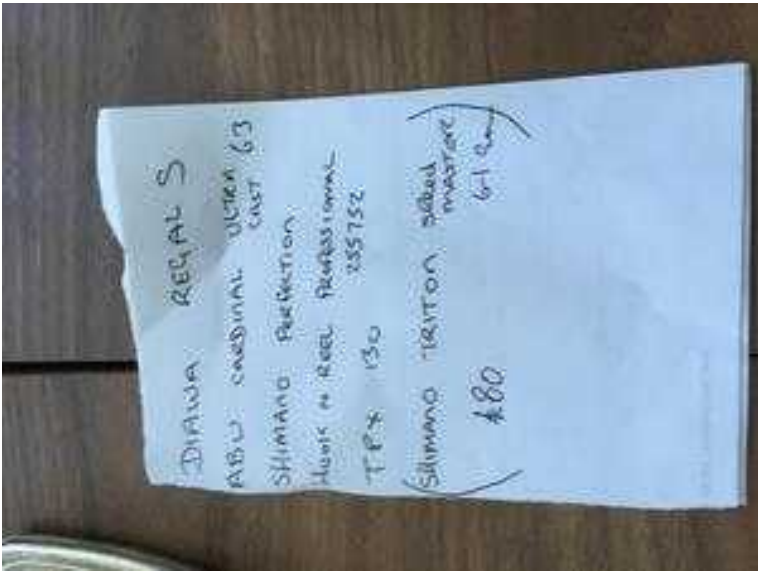 DIAWA REGAL S
ABU CARDINAL ULTRA 63
CAST
SHIMANO PERFECTION
HOOK N REEL PROFESSIONAL
255752
TPX 130
(SHIMANO TRITON speed
master)
£80